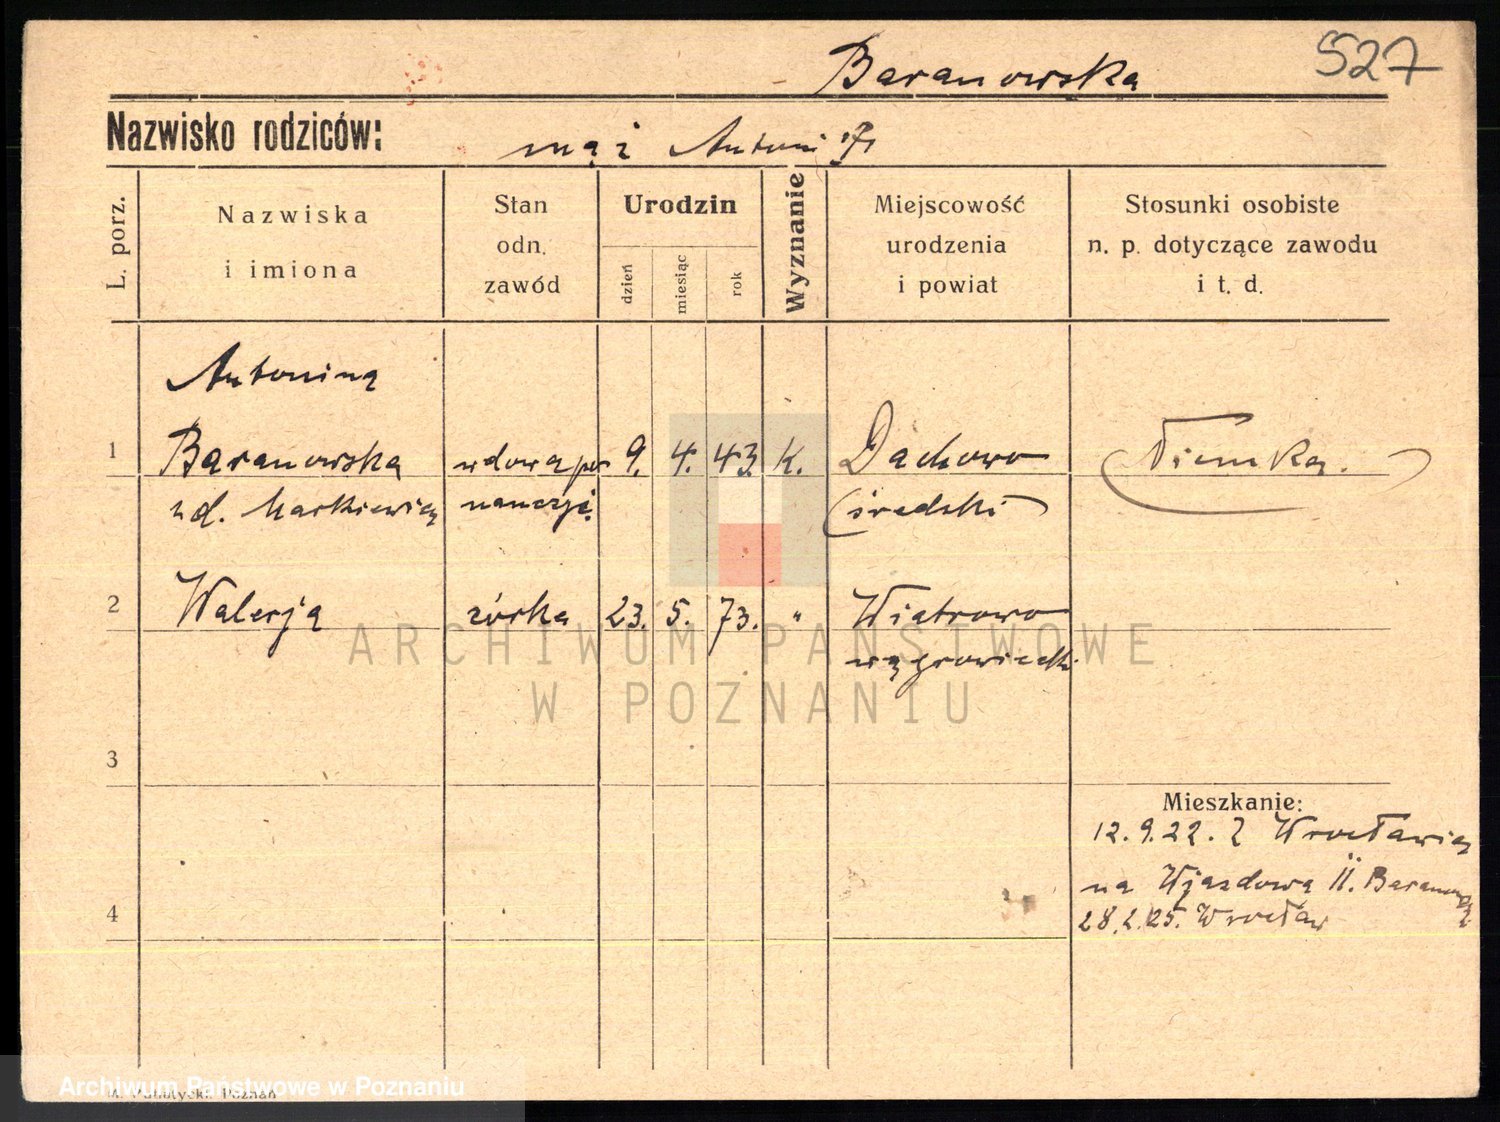 527
Baranowska
Nazwisko rodziców: mąż Antoni
L. porz.
Nazwiska
i imiona
Stan
odn.
zawód
Urodzin
dzień
miesiąc
rok
Wyznanie
Miejscowość
urodzenia
i powiat
Stosunki osobiste
n. p. dotyczące zawodu
i t. d.
Antonina
1 Baranowska wdowa po 9. 4. 43. K. Dachowo Niemka.
nauczyc. (średzki)
2 Walerja córka 23. 5. 73. " Wiatrowo
wągrowiecki
3
Mieszkanie:
12.9.22. z Wrocławia
na Wjazdową 11. Baranowska
4 28.2.25. Wrocław
ARCHIWUM PAŃSTWOWE
W POZNANIU
Archiwum Państwowe w Poznaniu
Poznań